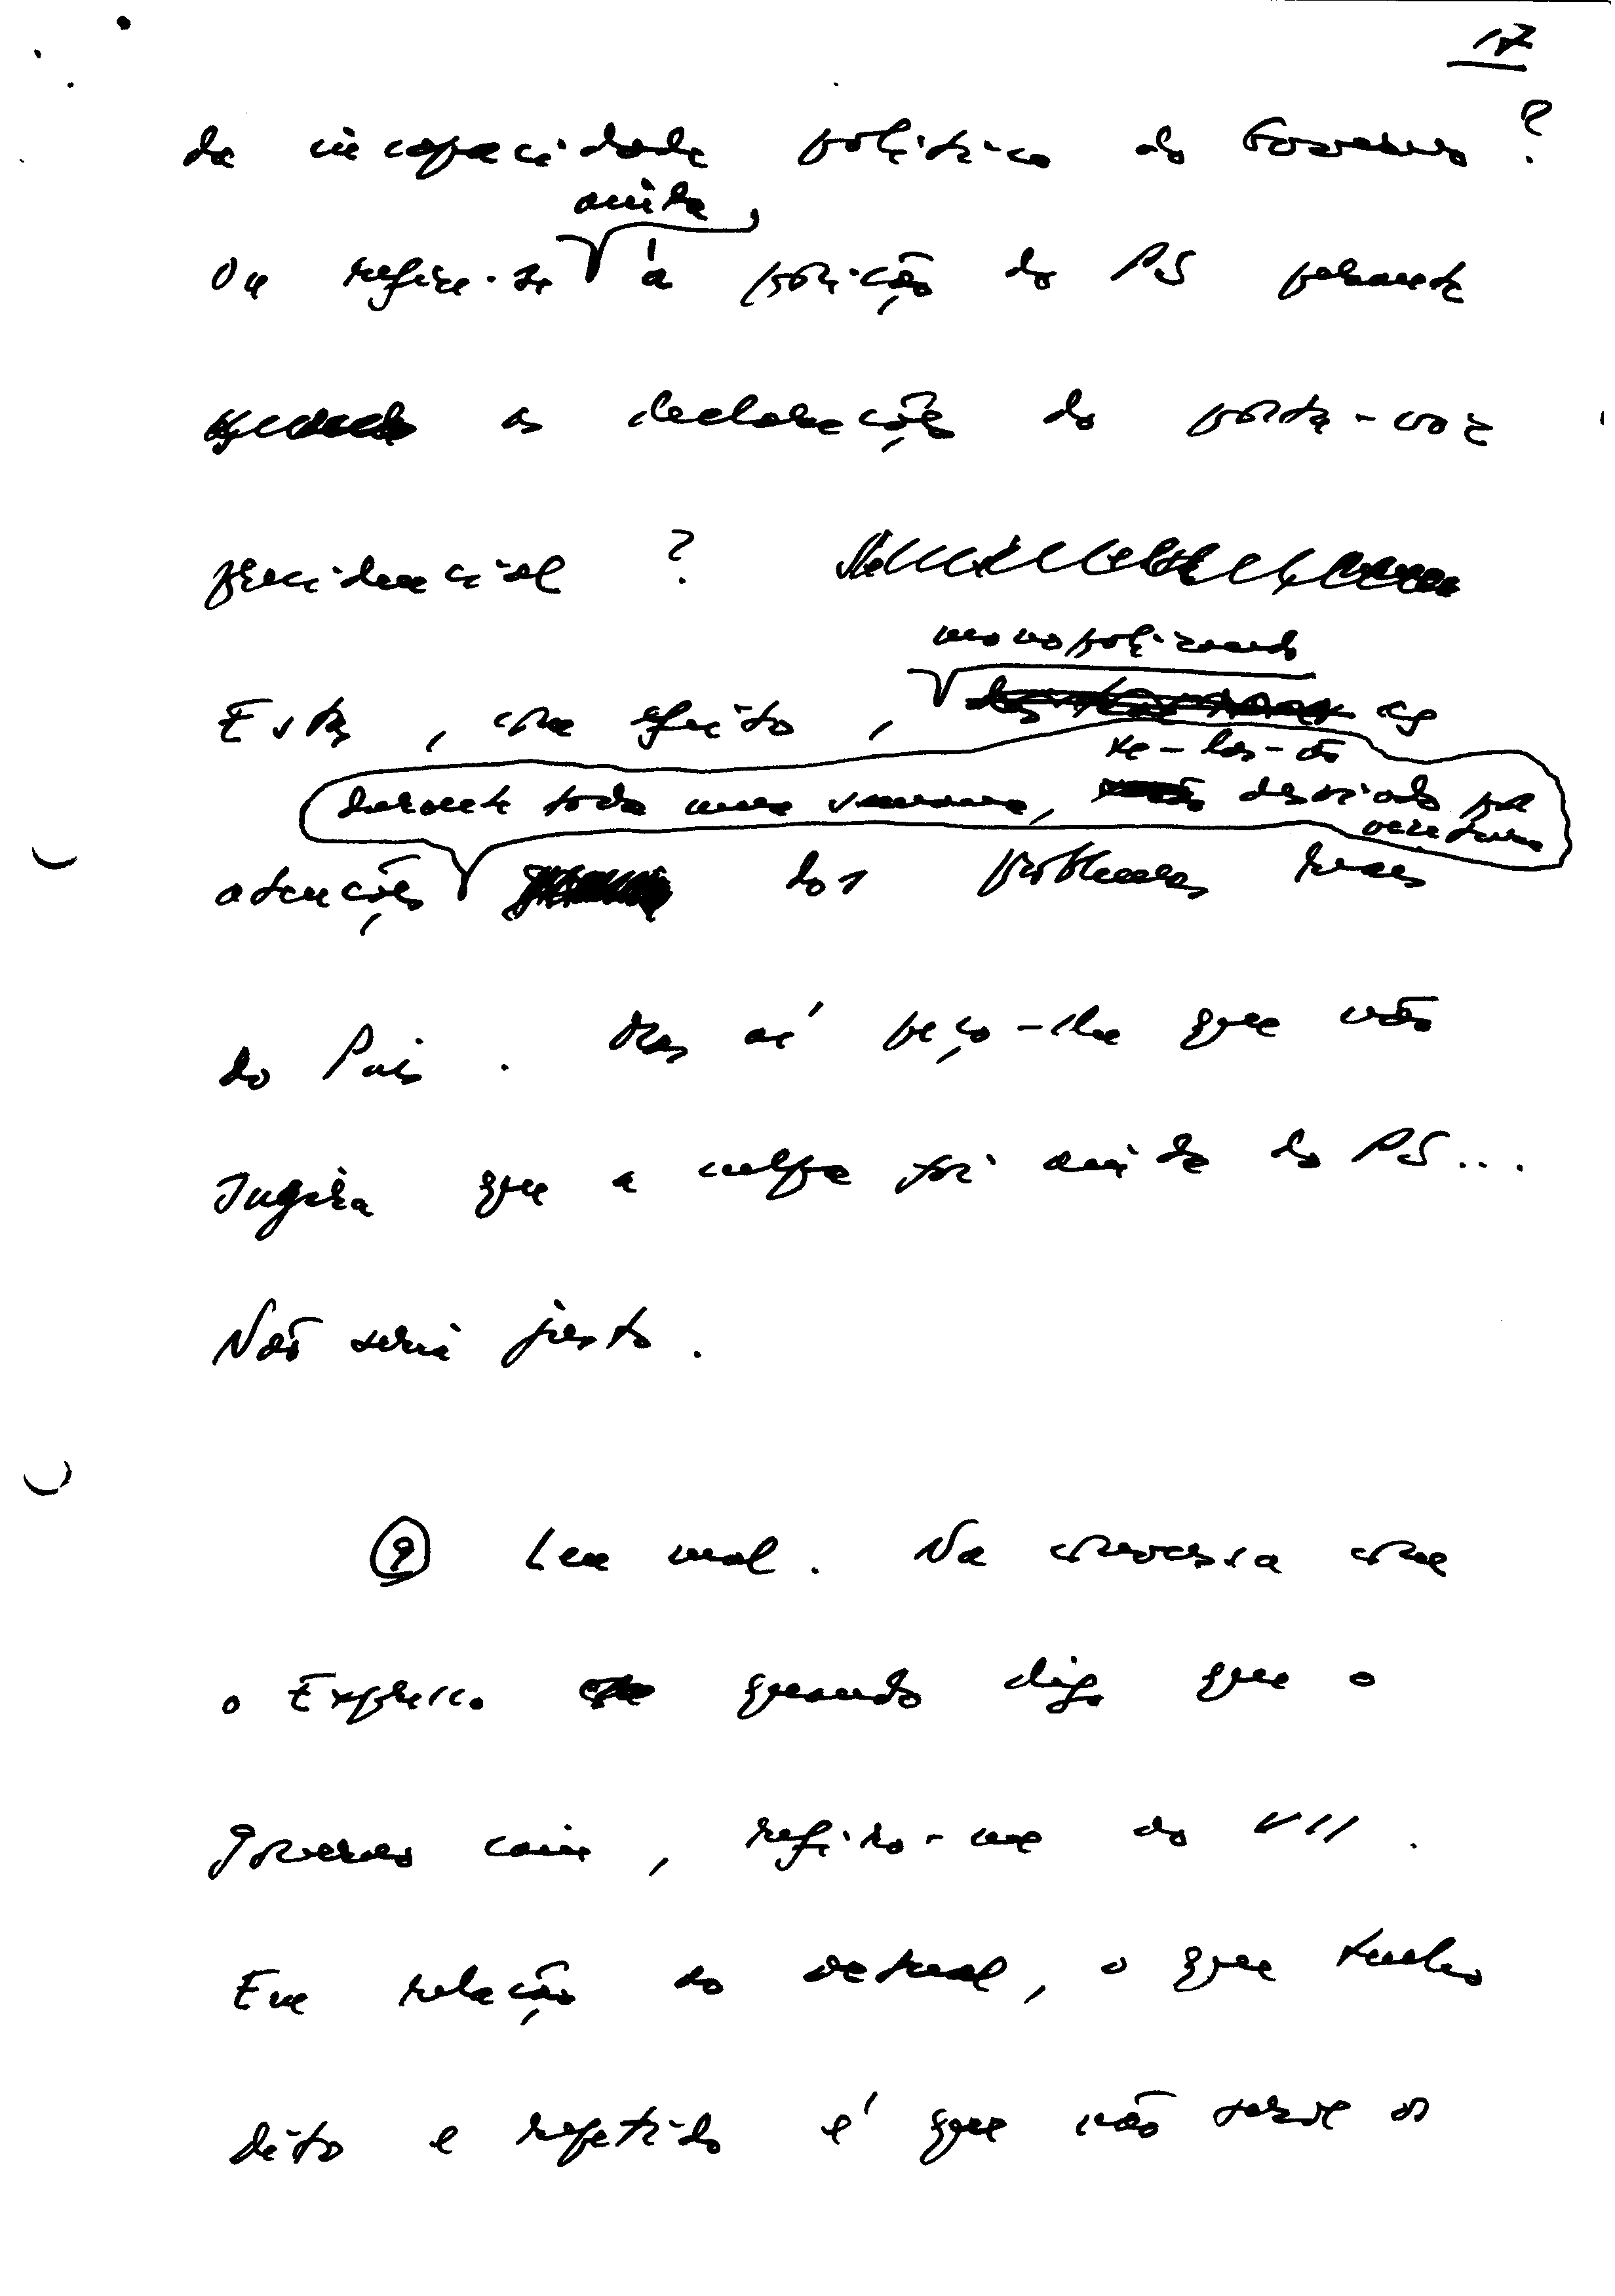 17
da incapacidade política do Governo?
ainda
Ou refere-se à posição do PS perante
as declarações do porta-voz
presidencial?
monopolizando
Esta, com efeito, as
te-las-ão
durante toda uma semana, desviado por
atenções dos problemas reais
do País. Mas aí peço-lhe que não
sugira que a culpa foi ainda do PS...
Não seria justo.
9 Leu mal. Na conversa com
o Expresso quando digo que o
Governo caiu, refiro-me ao VII.
Em relação ao actual, o que tenho
dito e repetido é que não serve os